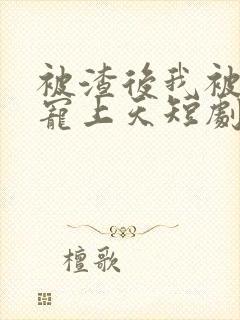 被渣後我被
寵上天短劇
檀歌